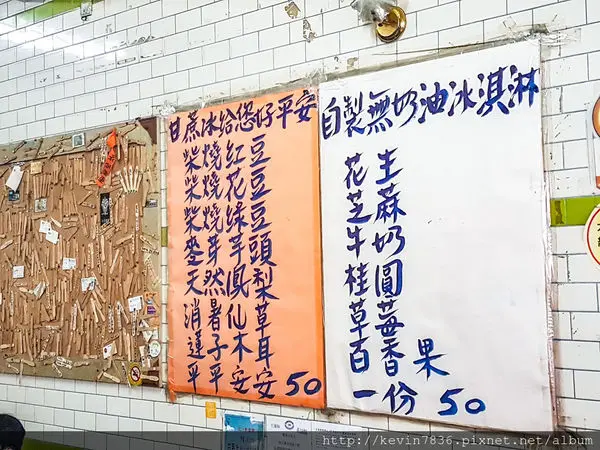 甘蔗冰給您好平安
柴燒紅豆
柴燒花豆
柴燒綠豆
麥芽芋頭
天然鳳梨
消暑仙草
蓮子木耳
平平安安50
自製無奶油冰淇淋
花生
芝麻
牛奶
桂圓
草莓
百香果
一份50
http://kevin7836.pixnet.net/album